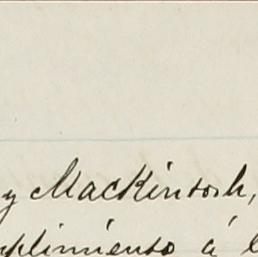 y Mackintosh,
mplimiento á l